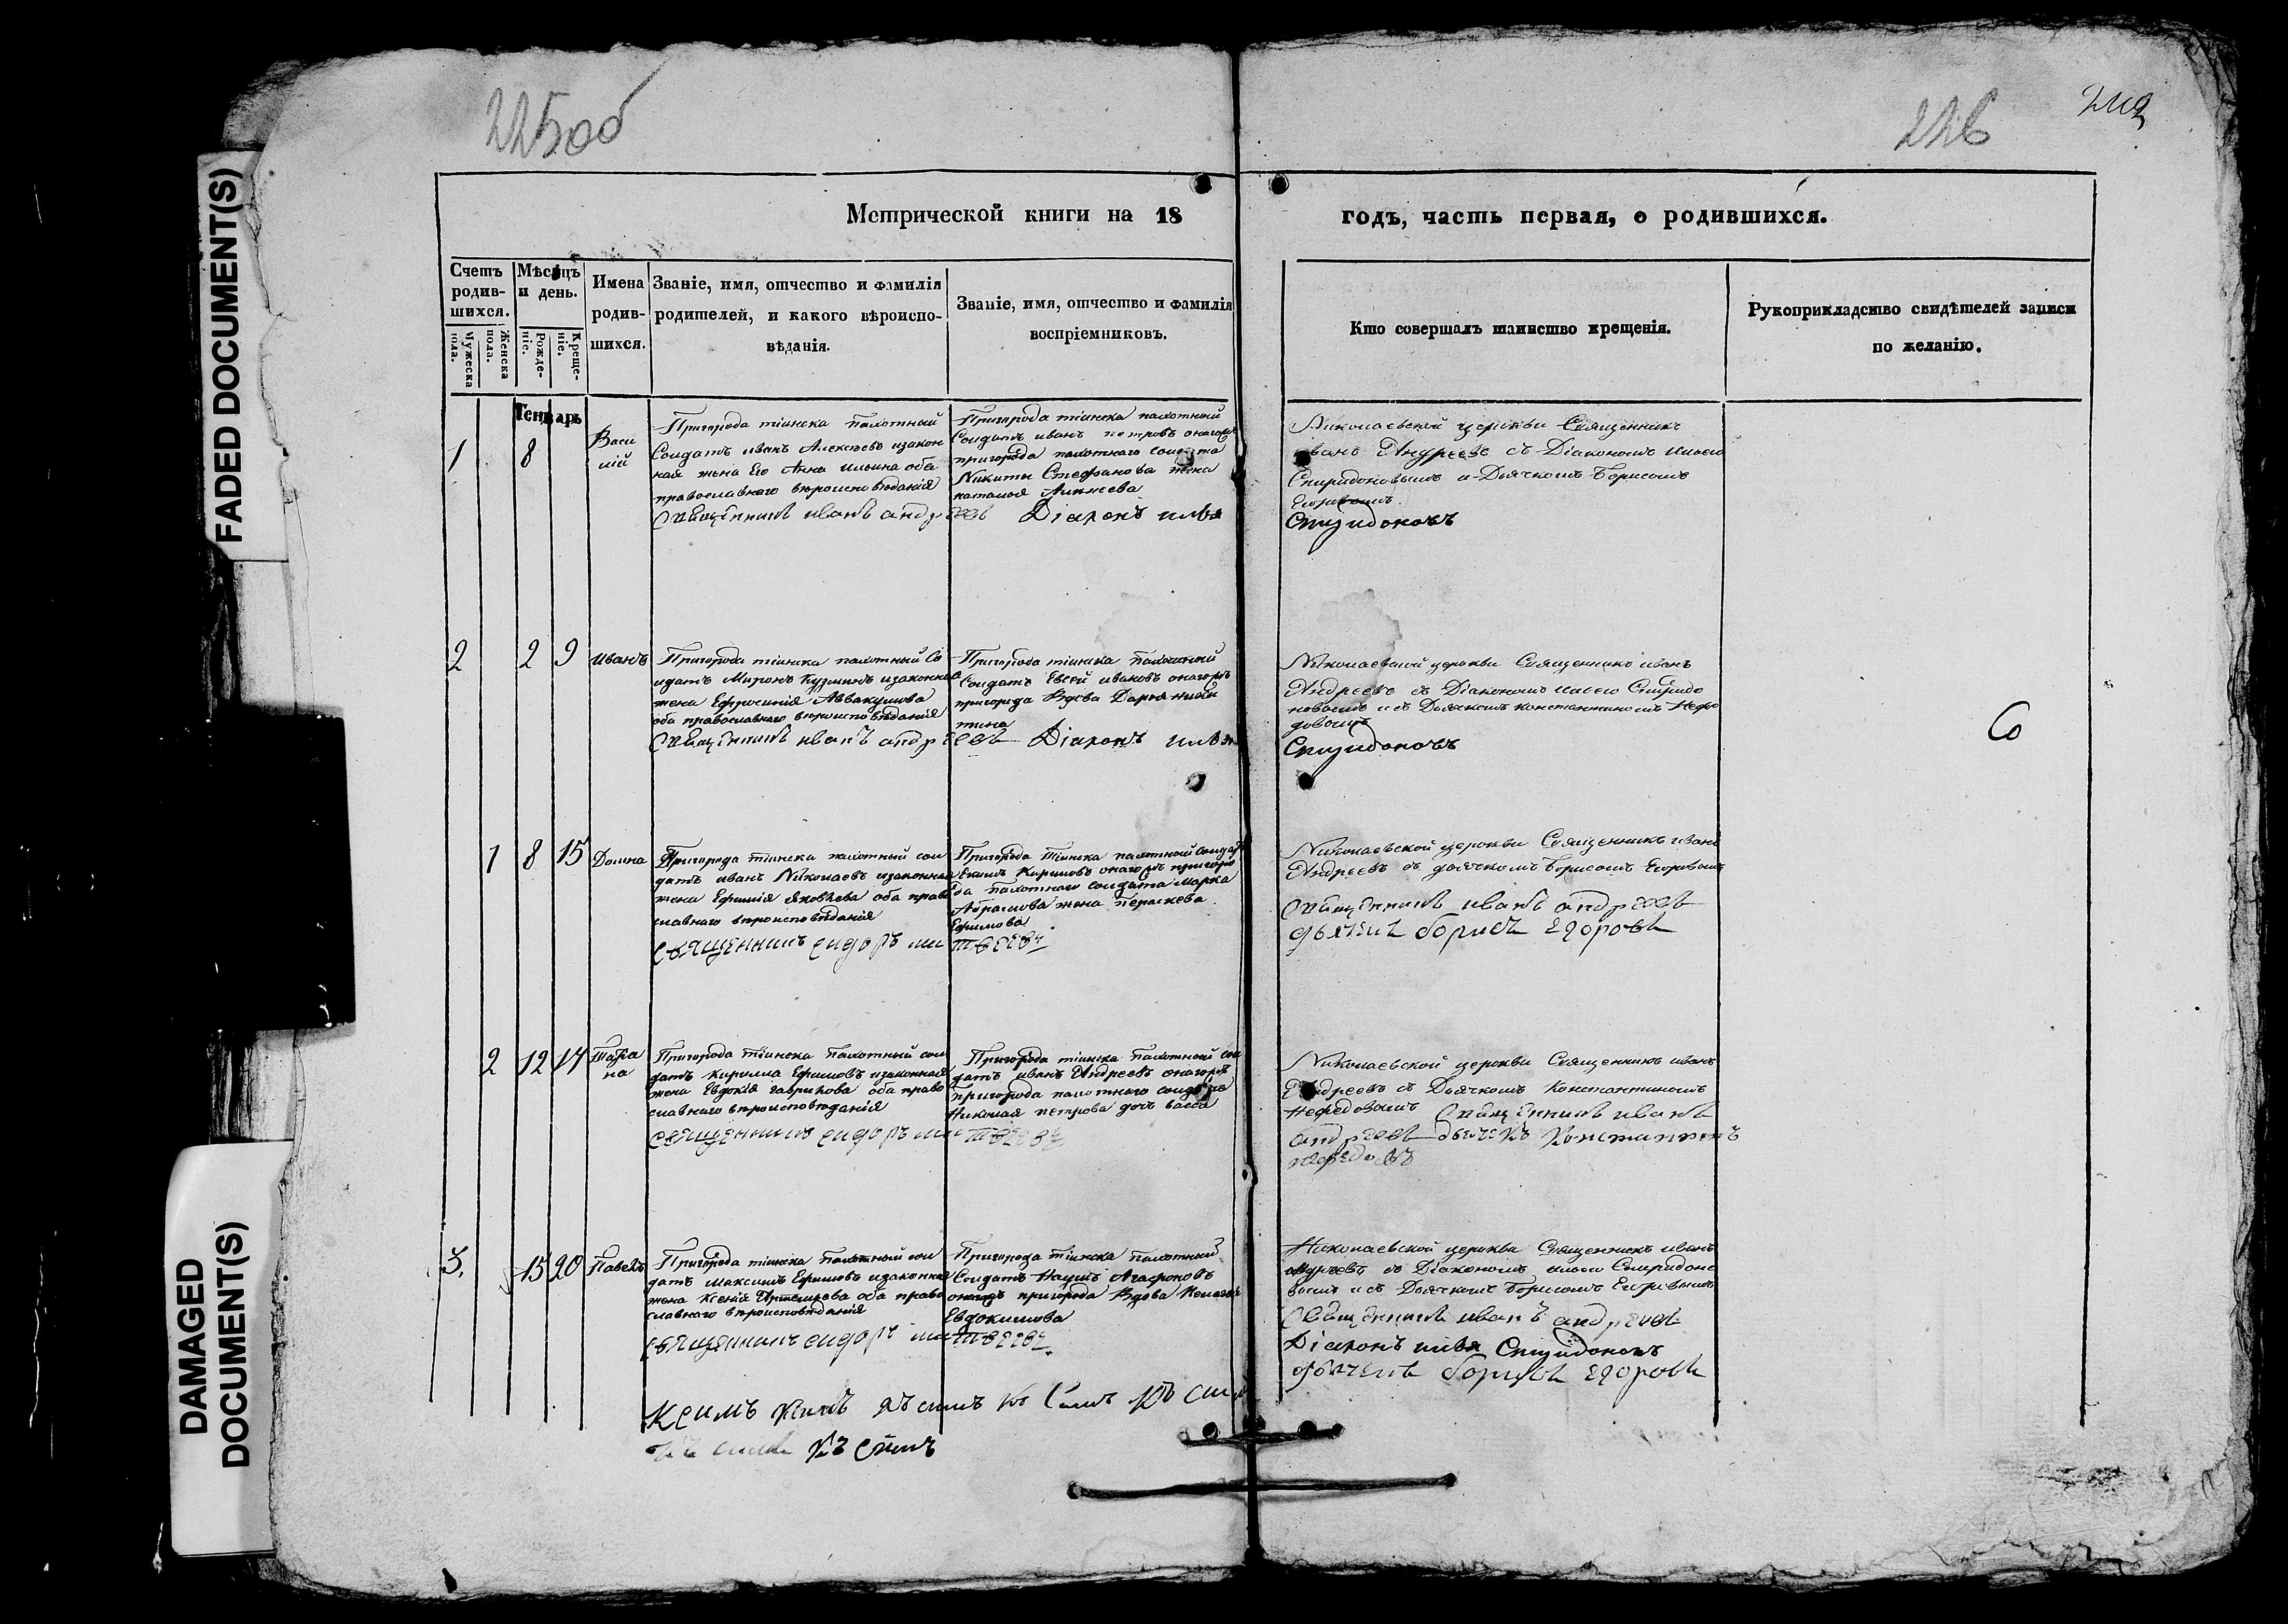 225об
226
FADED DOCUMENT(S)
DAMAGED DOCUMENT(S)
Метрической книги на 18 годъ, часть первая, о родившихся.
Счетъ родив-
шихся.
Мужеска пола.
Женска пола.
Мѣсяцъ
и день.
Рожде-
ніе.
Креще-
ніе.
Имена
родив-
шихся.
Званіе, имя, отчество и фамилія
родителей, и какого вѣроиспо-
вѣданія.
Званіе, имя, отчество и фамилія
воспріемниковъ.
Кто совершалъ таинство крещенія.
Рукоприкладство свидѣтелей записи
по желанію.
Генварь
1
8
Васи
лій
Пригорода тіинска пахотный
Солдатъ иванъ Алексѣевъ изакон
ная жена Его Анна ильина оба
православнаго вѣроисповѣданія
Пригорода тіинска пахотный
Солдатъ иванъ петровъ онагожъ
пригорода пахотнаго солдата
Никиты Стефанова жена
Николаевской церькви Священникъ
иванъ Андреевъ съ Діакономъ ильею
Спиридоновымъ и Дьячкомъ Борисомъ
Егоровымъ
Священникъ иванъ андреевъ Діаконъ илья
Спиридоновъ
2
2
9
иванъ
Пригорода тіинска пахотный Со
лдатъ Миронъ Кузминъ изаконная
жена Ефросинія Аввакумова
оба православнаго вѣроисповѣданія
Пригорода тіинска пахотный
Солдатъ Евсей ивановъ онагожъ
пригорода Вдова Дарья ники
тина
Николаевской церькви Священникъ иванъ
Андреевъ съ Діакономъ ильею Спиридо
новымъ и съ Дьячкомъ константиномъ Нефе
довымъ
Священникъ иванъ андреевъ Діаконъ илья
Спиридоновъ
1
8
15
Домна
Пригорода тіинска пахотный сол
датъ иванъ Николаевъ изаконная
жена Ефимія яковлева оба право
славнаго вѣроисповѣданія
Пригорода тіинска пахотный солдатъ
Екимъ Кириловъ онагожъ пригоро
да пахотнаго солдата Марка
Абрамова жена Параскева
Ефимова
Николаевской церькви Священникъ иванъ
Андреевъ съ дьячкомъ Борисомъ Егоровымъ
Священникъ иванъ андреевъ
дьячекъ борисъ егоровъ
священникъ сидоръ матвеевъ
2
12
17
Татья
на
Пригорода тіинска пахотный сол
датъ кирилла Ефимовъ изаконная
жена Евдокія гаврилова оба право
славнаго вѣроисповѣданія
Пригорода тіинска пахотный сол
датъ иванъ Андреевъ онагожъ
пригорода пахотнаго солдата
Николая петрова дочь васса
Николаевской церькви Священникъ иванъ
Андреевъ съ Дьячкомъ Константиномъ
Нефедовымъ Священникъ иванъ
андреевъ дьячекъ Константинъ
нефедовъ
священникъ сидоръ матвеевъ
3.
15
20
Павелъ
Пригорода тіинска пахотный сол
датъ максимъ Ефимовъ изаконная
жена Ксенія Артемьева оба право
славнаго вѣроисповѣданія
Пригорода тіинска пахотный
Солдатъ Наумъ Агафоновъ
онагожъ пригорода Вдова
Евдокимова
Николаевской церькви Священникъ иванъ
Андреевъ съ Діакономъ ильею Спиридоно
вымъ и съ Дьячкомъ Борисомъ Егоровымъ
Священникъ иванъ андреевъ
Діаконъ илья Спиридоновъ
дьячекъ борисъ егоровъ
священникъ сидоръ матвеевъ
къ симъ
къ симъ